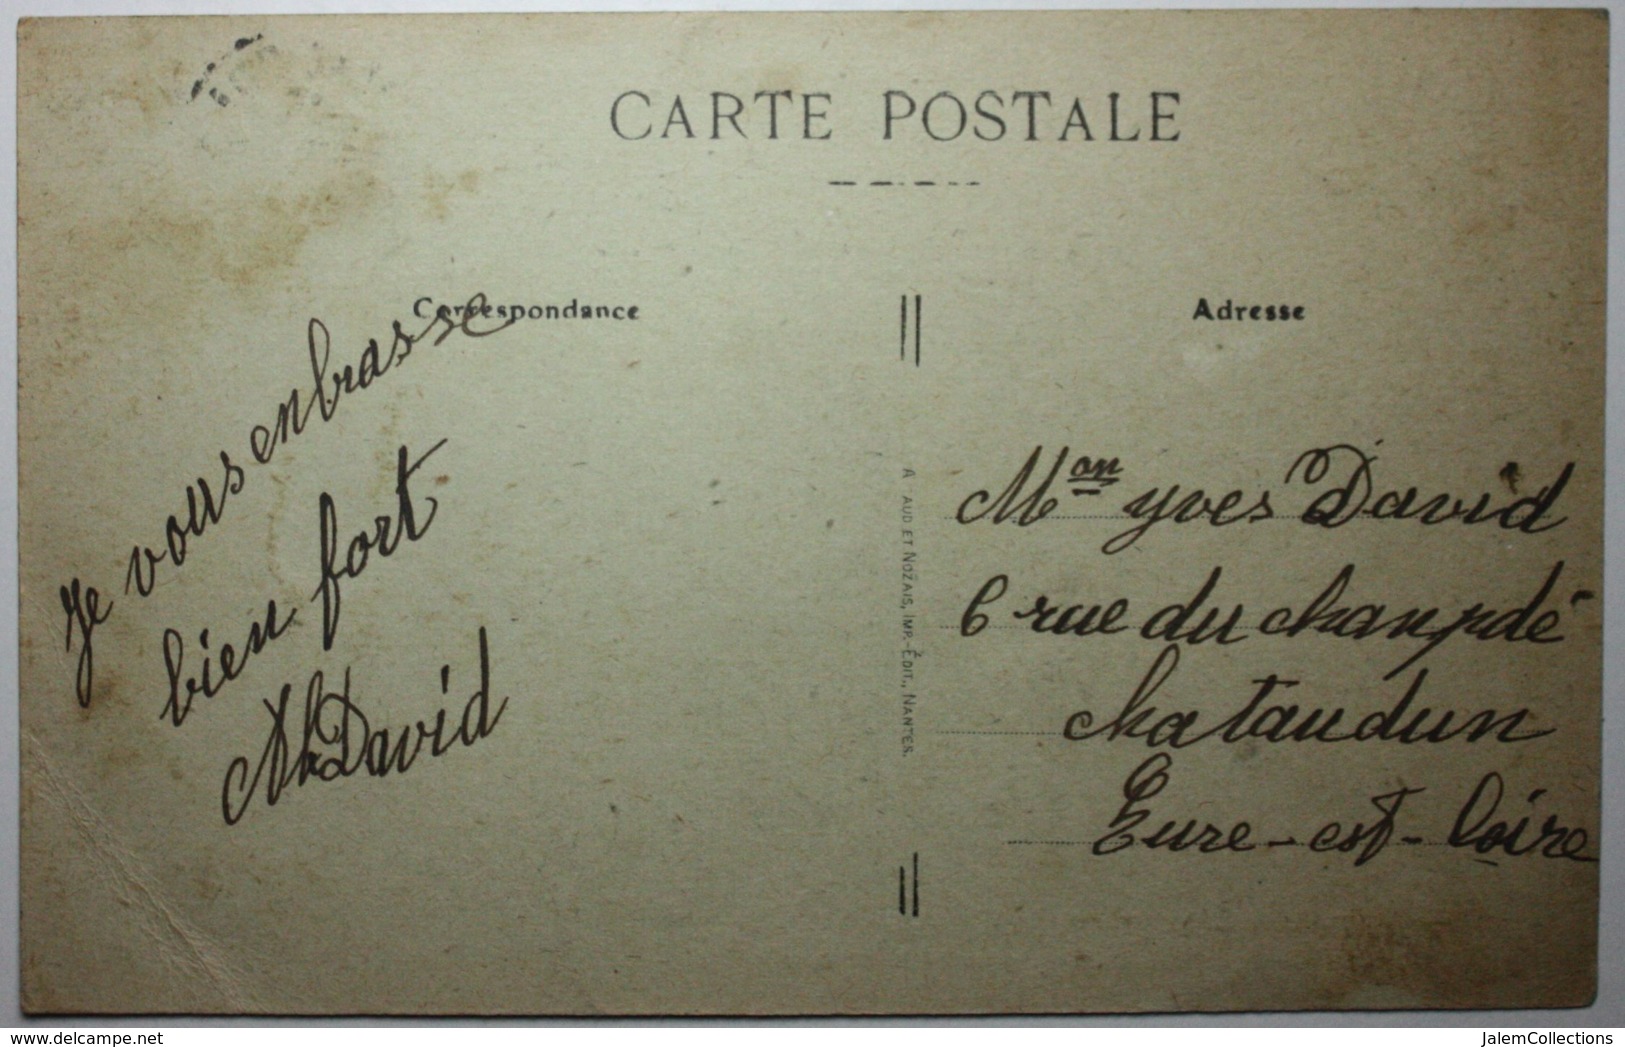 CARTE POSTALE
Correspondance
Adresse
Je vous enbrasse
bien fort
David
Mon yves David
6 rue du chanpdé
chataudun
Eure-est-loire
AUD ET NOZAIS, IMP.-ÉDIT., NANTES.
https://www.delcampe.net
JalemCollections